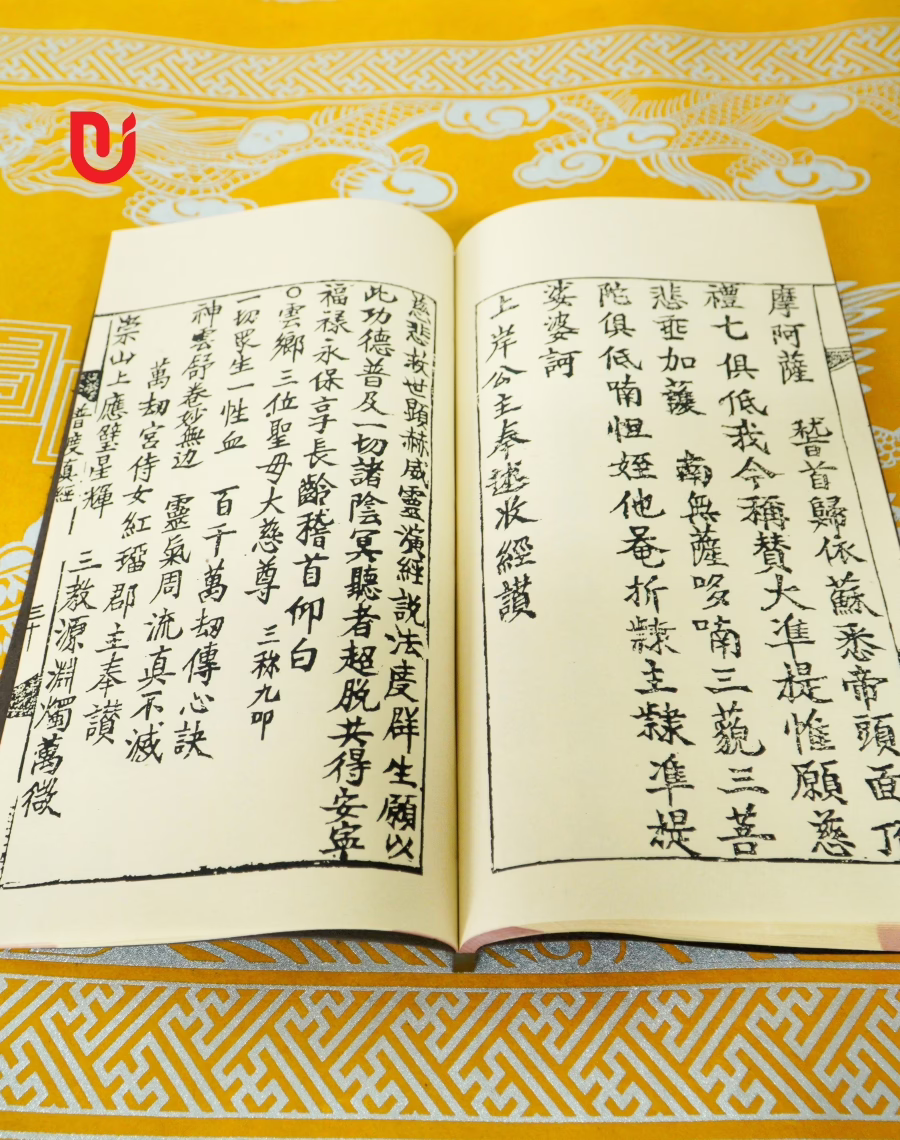 摩阿薩　稽首歸依蘇悉帝頭面頂
禮七俱低我今稱賛大准提惟願慈
悲垂加護　南無薩哆喃三藐三菩
陀俱低喃怛姪他菴折隸主隸准提
娑婆訶
上岸公主奉述收經讃
慈悲救世顯赫威靈演經説法度群生願以
此功德普及一切諸陰冥聽者超脱共得安寧
福禄永保享長齡稽首仰白
○雲鄉三位聖母大慈尊　三称九叩
一切眾生一性血　百千萬劫傳心訣
神雲舒卷妙無边　靈氣周流真不滅
萬劫宮侍女紅璢郡主奉讃
崇山上應璧星輝　三教源淵濁萬徵
普度真經　三十